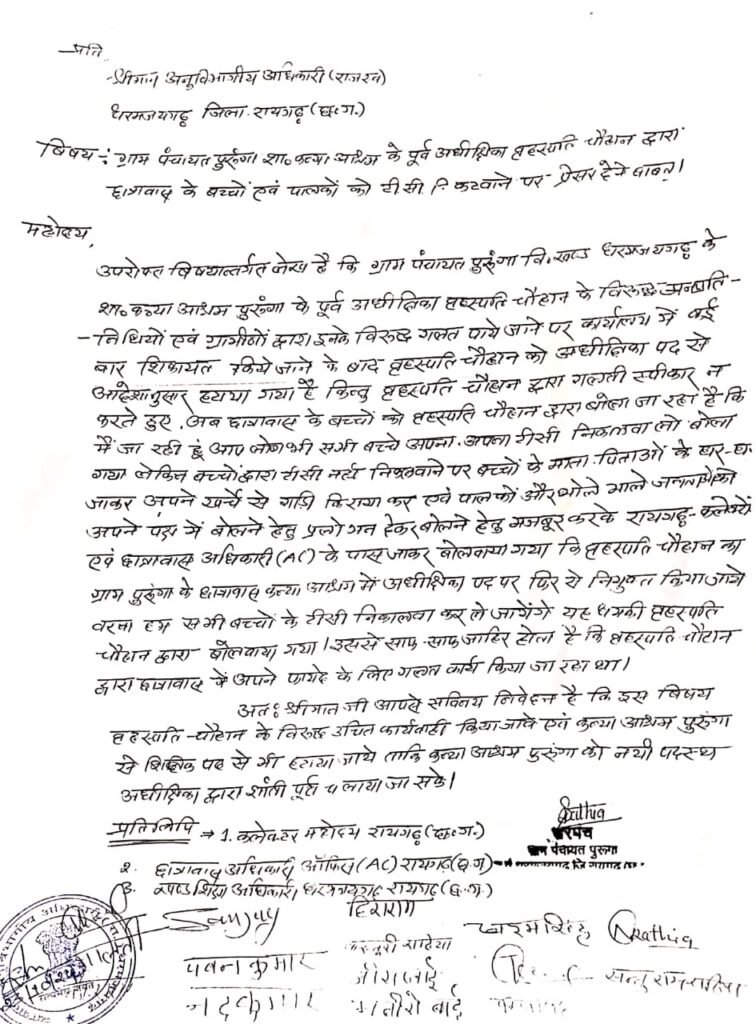 प्रति,
श्रीमान अनुविभागीय अधिकारी (राजस्व)
धरमजयगढ़ जिला-रायगढ़ (छ.ग.)
विषय :- ग्राम पंचायत पुरुंगा शा० कन्या आश्रम के पूर्व अधीक्षिका बृहस्पति चौहान द्वारा
छात्रावास के बच्चों एवं पालकों को टीसी निकलवाने पर प्रेसर देने बाबत्।
महोदय,
उपरोक्त विषयान्तर्गत लेख है कि ग्राम पंचायत पुरुंगा वि. खण्ड धरमजयगढ़ के
शा० कन्या आश्रम पुरुंगा के पूर्व अधीक्षिका बृहस्पति चौहान के विरुद्ध जनप्रति-
-निधियों एवं ग्रामीणों द्वारा इनके विरुद्ध गलत पाये जाने पर कार्यालय में कई
बार शिकायत किये जाने के बाद बृहस्पति चौहान को अधीक्षिका पद से
आदेशानुसार हटाया गया है किन्तु बृहस्पति चौहान द्वारा गलती स्वीकार न
करते हुए, अब छात्रावास के बच्चों को बृहस्पति चौहान द्वारा बोला जा रहा है कि
मैं जा रही हूं आप लोग भी सभी बच्चे अपना-अपना टीसी निकलवा लो बोला
गया लेकिन बच्चों द्वारा टीसी नहीं निकलवाने पर बच्चों के माता-पिताओं के घर-घर
जाकर अपने खर्चे से गाड़ी किराया कर एवं पालकों और भोले भाले जनता को
अपने पक्ष में बोलने हेतु प्रलोभन देकर बोलने हेतु मजबुर करके रायगढ़-कलेक्टर
एवं छात्रावास अधिकारी (AC) के पास जाकर बोलवाया गया कि बृहस्पति चौहान को
ग्राम पुरुंगा के छात्रावास कन्या आश्रम में अधीक्षिका पद पर फिर से नियुक्त किया जाये
वरना हम सभी बच्चों के टीसी निकालवा कर ले जायेंगे यह धमकी बृहस्पति
चौहान द्वारा बोलवाया गया। इससे साफ-साफ जाहिर होता है कि बृहस्पति चौहान
द्वारा छात्रावास में अपने फायदे के लिए गलत कार्य किया जा रहा था।
अतः श्रीमान जी आपसे सविनय निवेदन है कि इस विषय
बृहस्पति-चौहान के विरुद्ध उचित कार्यवाही किया जावे एवं कन्या आश्रम पुरुंगा
से शिक्षक पद से भी हटाया जाये ताकि कन्या आश्रम पुरुंगा को नयी पदस्थ
अधीक्षिका द्वारा शांती पूर्वक चलाया जा सके।
प्रतिलिपि → 1. कलेक्टर महोदय रायगढ़ (छ.ग.)
Rathia
सरपंच
ग्राम पंचायत पुरुंगा
2. छात्रावास अधिकारी ऑफिस (AC) रायगढ़ (छ.ग)
3. खण्ड शिक्षा अधिकारी धरमजयगढ़ रायगढ़ (छ.ग.)
Sanjay
हिराराम
Rathia
पवन कुमार
नंदकुमार